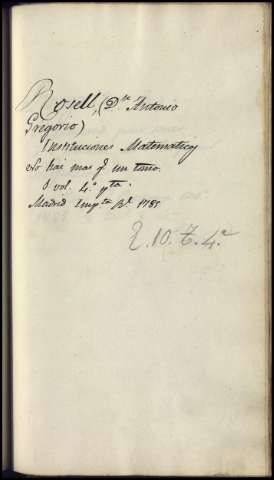 Rosell, (Dn Antonio
Gregorio)
Instituciones Matematicas
No hai mas q.e un tomo.
1 vol. 4.º pta
Madrid Impta Rl. 1785
E. 10. T. 4.º